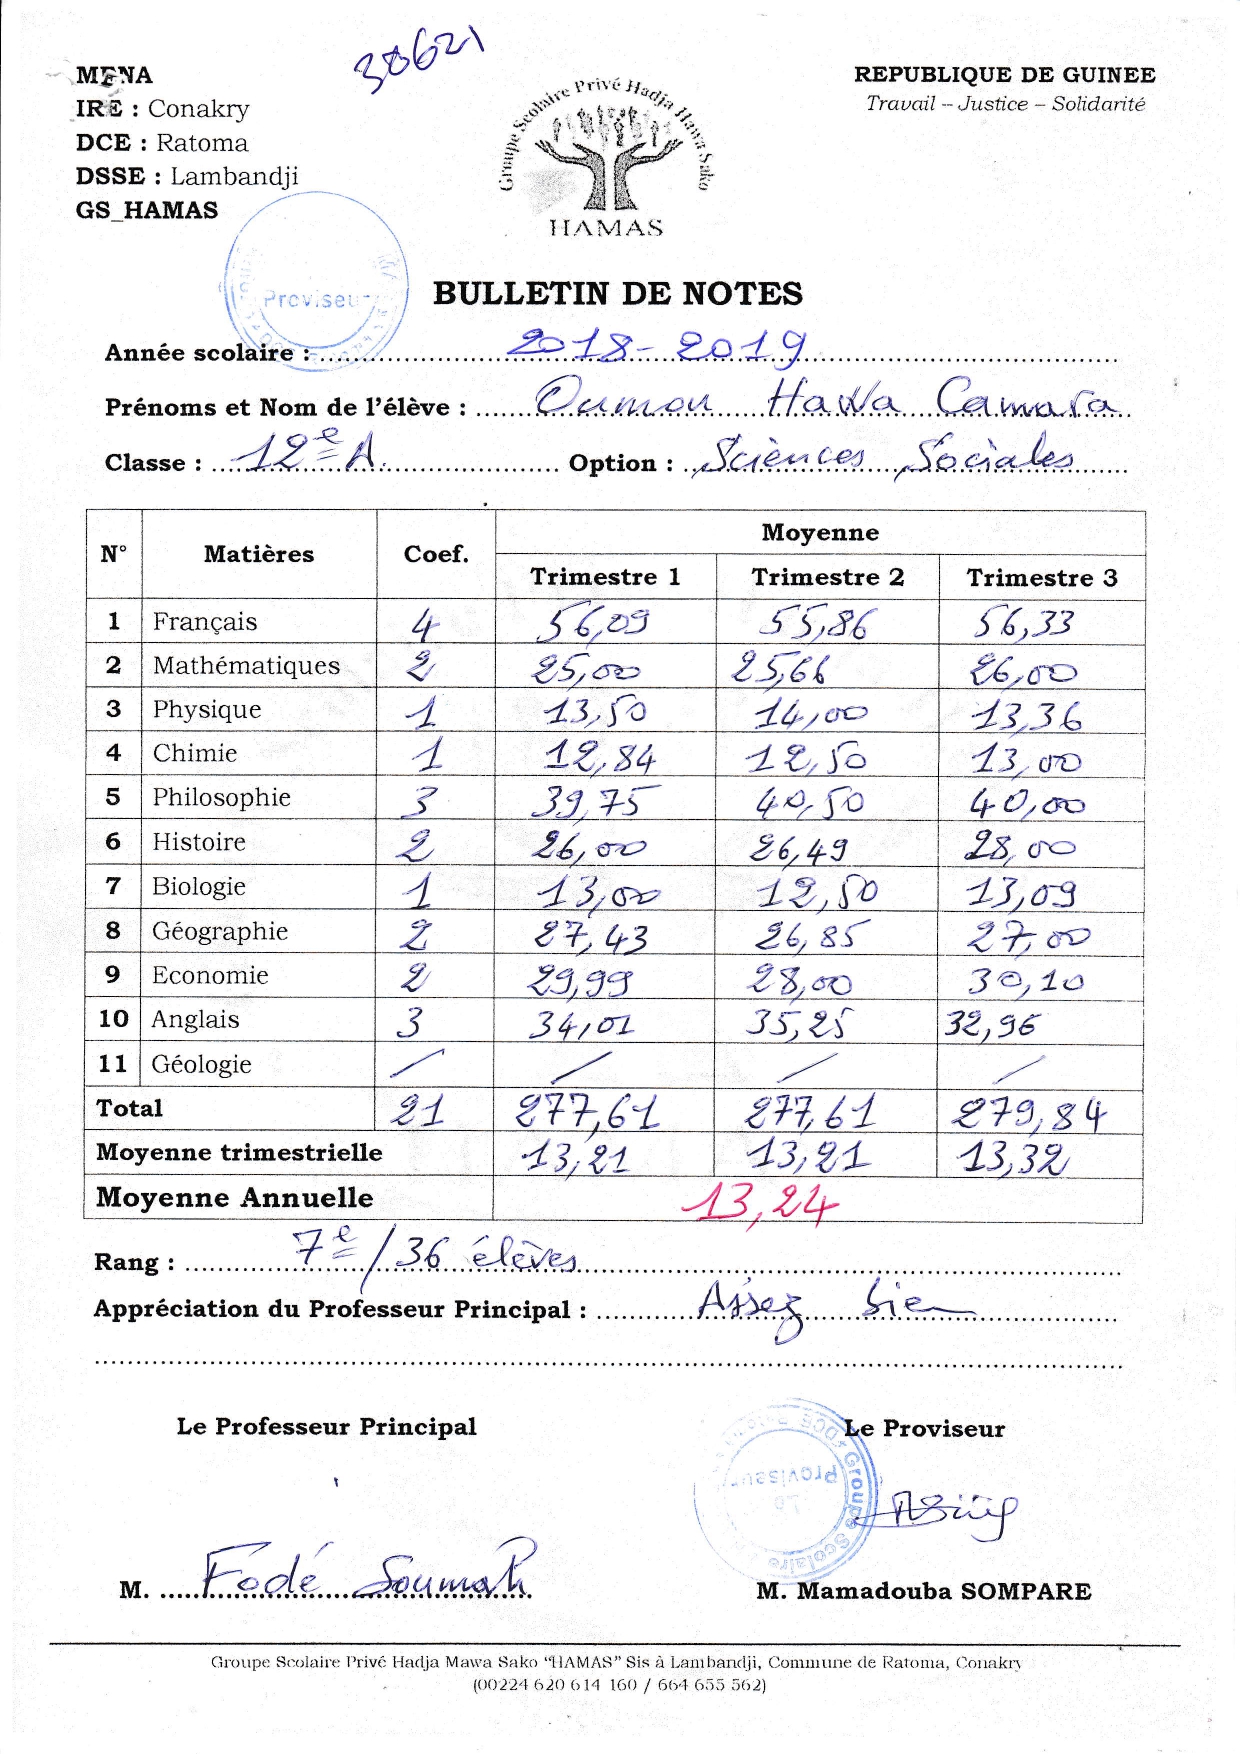 30621
MENA
IRE : Conakry
DCE : Ratoma
DSSE : Lambandji
GS_HAMAS
Groupe Scolaire Privé Hadja Hawa Sako
HAMAS
REPUBLIQUE DE GUINEE
Travail – Justice – Solidarité
Proviseur
BULLETIN DE NOTES
Année scolaire : 2018-2019
Prénoms et Nom de l'élève : Oumou Hawa Camara
Classe : 12e A Option : Sciènces Sociales
N° Matières Coef. Moyenne
Trimestre 1 Trimestre 2 Trimestre 3
1 Français 4 56,09 55,86 56,33
2 Mathématiques 2 25,00 25,66 26,00
3 Physique 1 13,50 14,00 13,36
4 Chimie 1 12,84 12,50 13,00
5 Philosophie 3 39,75 40,50 40,00
6 Histoire 2 26,00 26,49 28,00
7 Biologie 1 13,00 12,50 13,09
8 Géographie 2 27,43 26,85 27,00
9 Economie 2 29,99 28,00 30,10
10 Anglais 3 34,01 35,25 32,96
11 Géologie / / / /
Total 21 277,61 277,61 279,84
Moyenne trimestrielle 13,21 13,21 13,32
Moyenne Annuelle 13,24
Rang : 7e/36 élèves
Appréciation du Professeur Principal : Assez bien
Le Professeur Principal Le Proviseur
Proviseur
Groupe Scolaire
M. Fodé Soumah M. Mamadouba SOMPARE
Groupe Scolaire Privé Hadja Mawa Sako "HAMAS" Sis à Lambandji, Commune de Ratoma, Conakry
(00224 620 614 160 / 664 655 562)